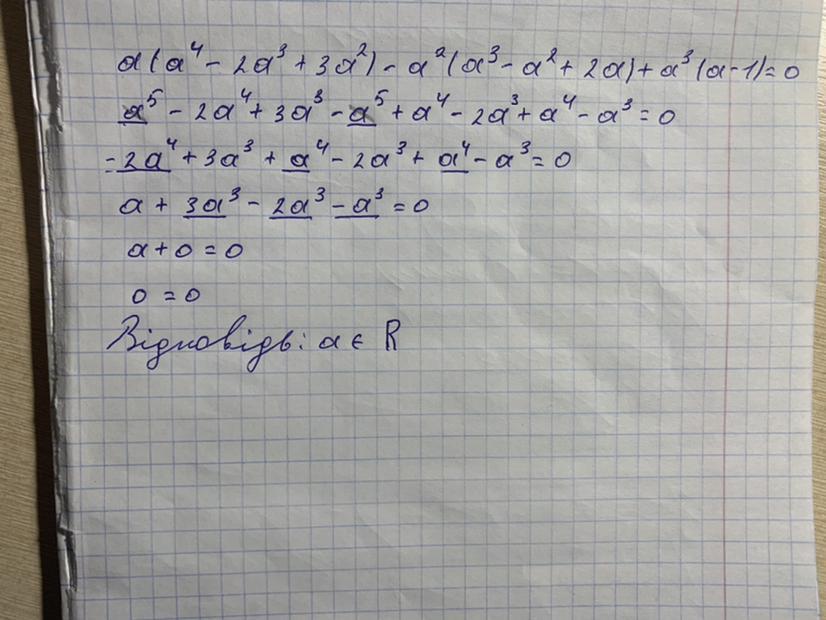 a(a⁴ - 2a³ + 3a²) - a²(a³ - a² + 2a) + a³(a-1) = 0
a⁵ - 2a⁴ + 3a³ - a⁵ + a⁴ - 2a³ + a⁴ - a³ = 0
-2a⁴ + 3a³ + a⁴ - 2a³ + a⁴ - a³ = 0
a + 3a³ - 2a³ - a³ = 0
a + 0 = 0
0 = 0
Відповідь: a ∈ R